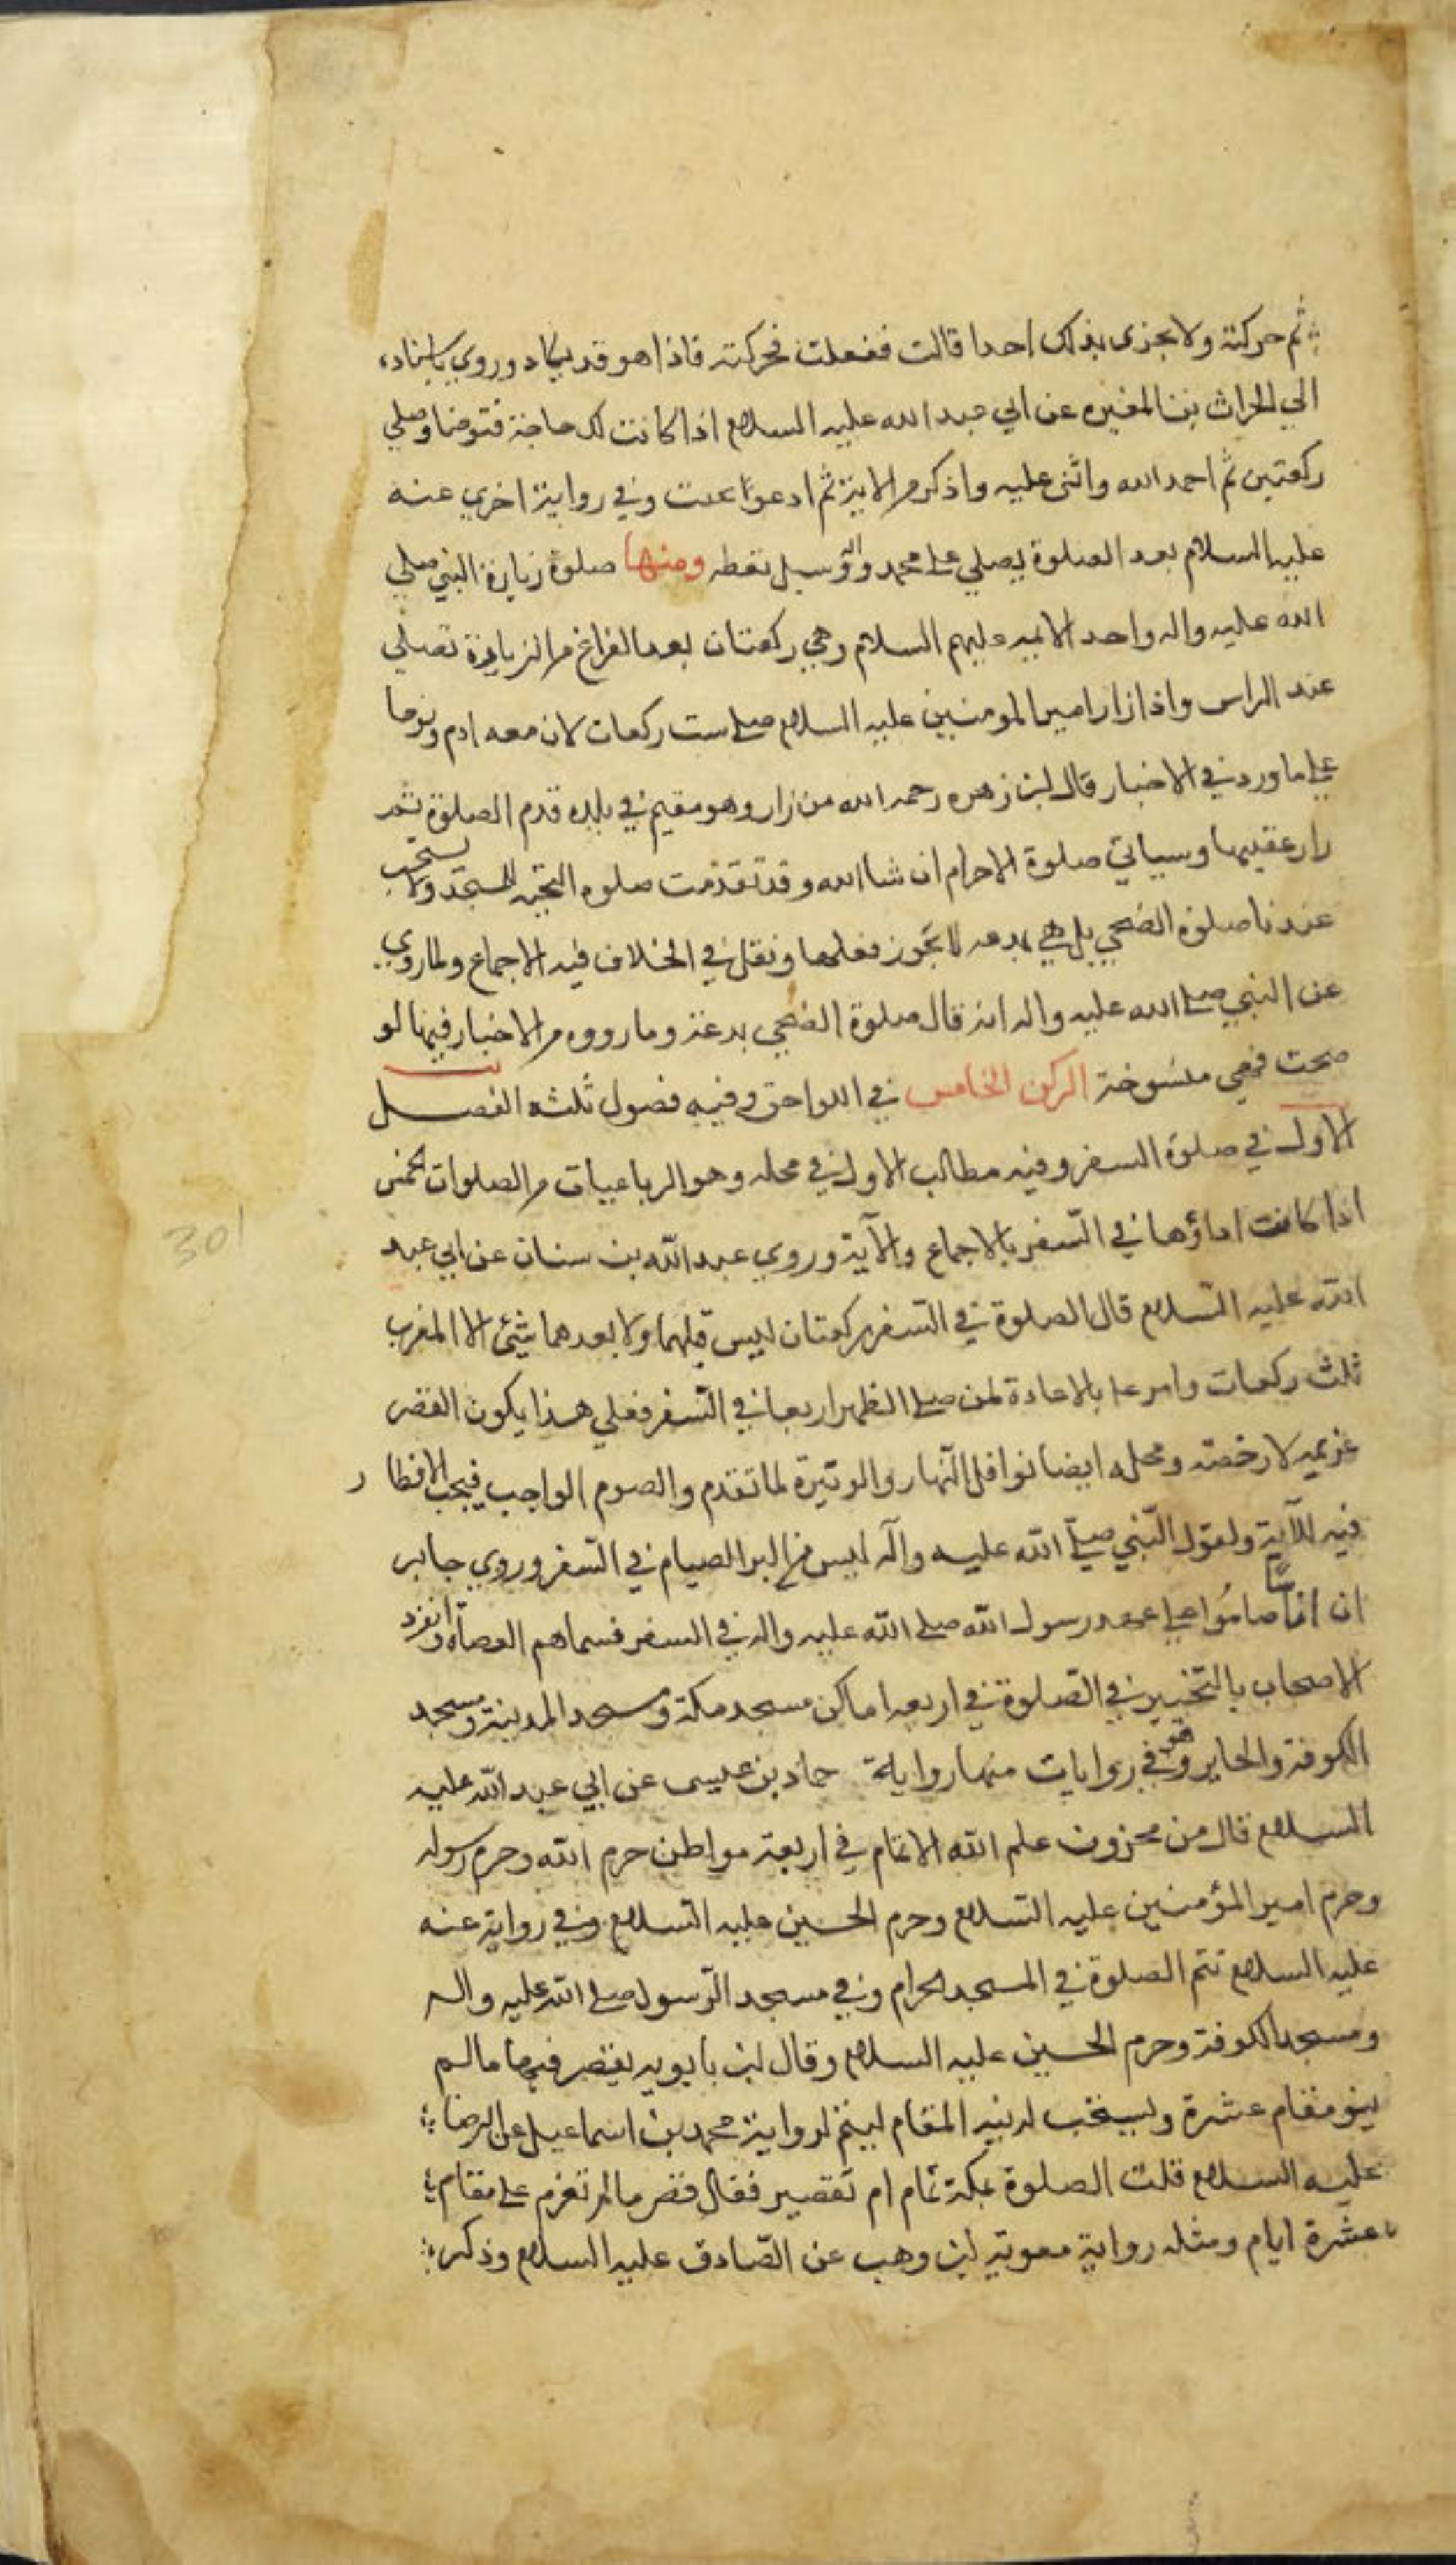 ثم حركته ولا تخبري بذلك احدا قالت ففعلت فحركته فاذا هو قد بكا وروي باسناده
الي الحراث بن المغيره عن ابي عبد الله عليه السلام اذا كانت لك حاجة فتوضا وصلي
ركعتين ثم احمد الله واثنى عليه واذكر من الاية ثم ادعو تجت وفي رواية اخري عنه
عليه السلام بعد الصلوة يصلي على محمد واله وسيل تعطه ومنها صلوة زيارة النبي صلي
الله عليه واله واحد الايمه عليهم السلام وهي ركعتان بعد الفراغ من الزيارة تصلي
عند الراس واذا زار امير المومنين عليه السلام صلى ست ركعات لان معه ادم ونوحا
على ما ورد في الاخبار قال ابن زهره رحمه الله من زار وهو مقيم في بلده قدم الصلوة ثم
زار عقيبها وسياتي صلوة الاحرام ان شا الله وقد تقدمت صلوه التحيه للمسجد ولا يستحب
عندنا صلوة الضحي بل هي بدعه لا يجوز فعلها ونقل في الخلاف فيه الاجماع ولما روي
عن النبي صلى الله عليه واله انه قال صلوة الضحي بدعة وما رووه من الاخبار فيها لو
صحت فهي منسوخة الركن الخامس في اللواحق وفيه فصول ثلثه الفصل
الاول في صلوة السفر وفيه مطالب الاول في محله وهو الرباعيات من الصلوات الخمس
اذا كانت اداؤها في السّفر بالاجماع والآية وروي عبد الله بن سنان عن ابي عبد
الله عليه السّلام قال الصلوة في السّفر ركعتان ليس قبلهما ولا بعدهما شيئ الا المغرب
ثلث ركعات وامر عا بالاعادة لمن صلى الظهر اربعا في السّفر فعلي هذا يكون القصر
عزيمه لا رخصه ومحله ايضا نوافل النّهار والوتيرة لما تقدم والصوم الواجب فيجب الافطار
فيه للآية ولقول النّبي صلى الله عليه وآله ليس من البر الصيام في السّفر وروي جابر
ان اناسًا صامُوا على عهد رسول الله صلى الله عليه واله في السفر فسماهم العصاة وانفرد
الاصحاب بالتّخيير في الصّلوة في اربعه اماكن مسجد مكة ومسجد المدينة ومسجد
الكوفة والحاير وهو في روايات منها رواية حماد بن عليسى عن ابي عبد الله عليه
السلام قال من مخزون علم الله الاتمام في اربعة مواطن حرم الله وحرم رسوله
وحرم امير المؤمنين عليه السّلام وحرم الحسين عليه السّلام وفي رواية عنه
عليه السلام تتم الصلوة في المسجد الحرام وفي مسجد الرّسول صلى الله عليه واله
ومسجد الكوفة وحرم الحسين عليه السلام وقال ابن بابويه يقصر فيها ما لم
ينو مقام عشرة ويستحب له نية المقام ليتم لرواية محمد بن اسماعيل عن الرضا
عليه السلام قلت الصلوة بمكة تمام ام تقصير فقال قصر ما لم تعزم على مقام
عشرة ايام ومثله رواية معوية ابن وهب عن الصّادق عليه السلام وذكر
301